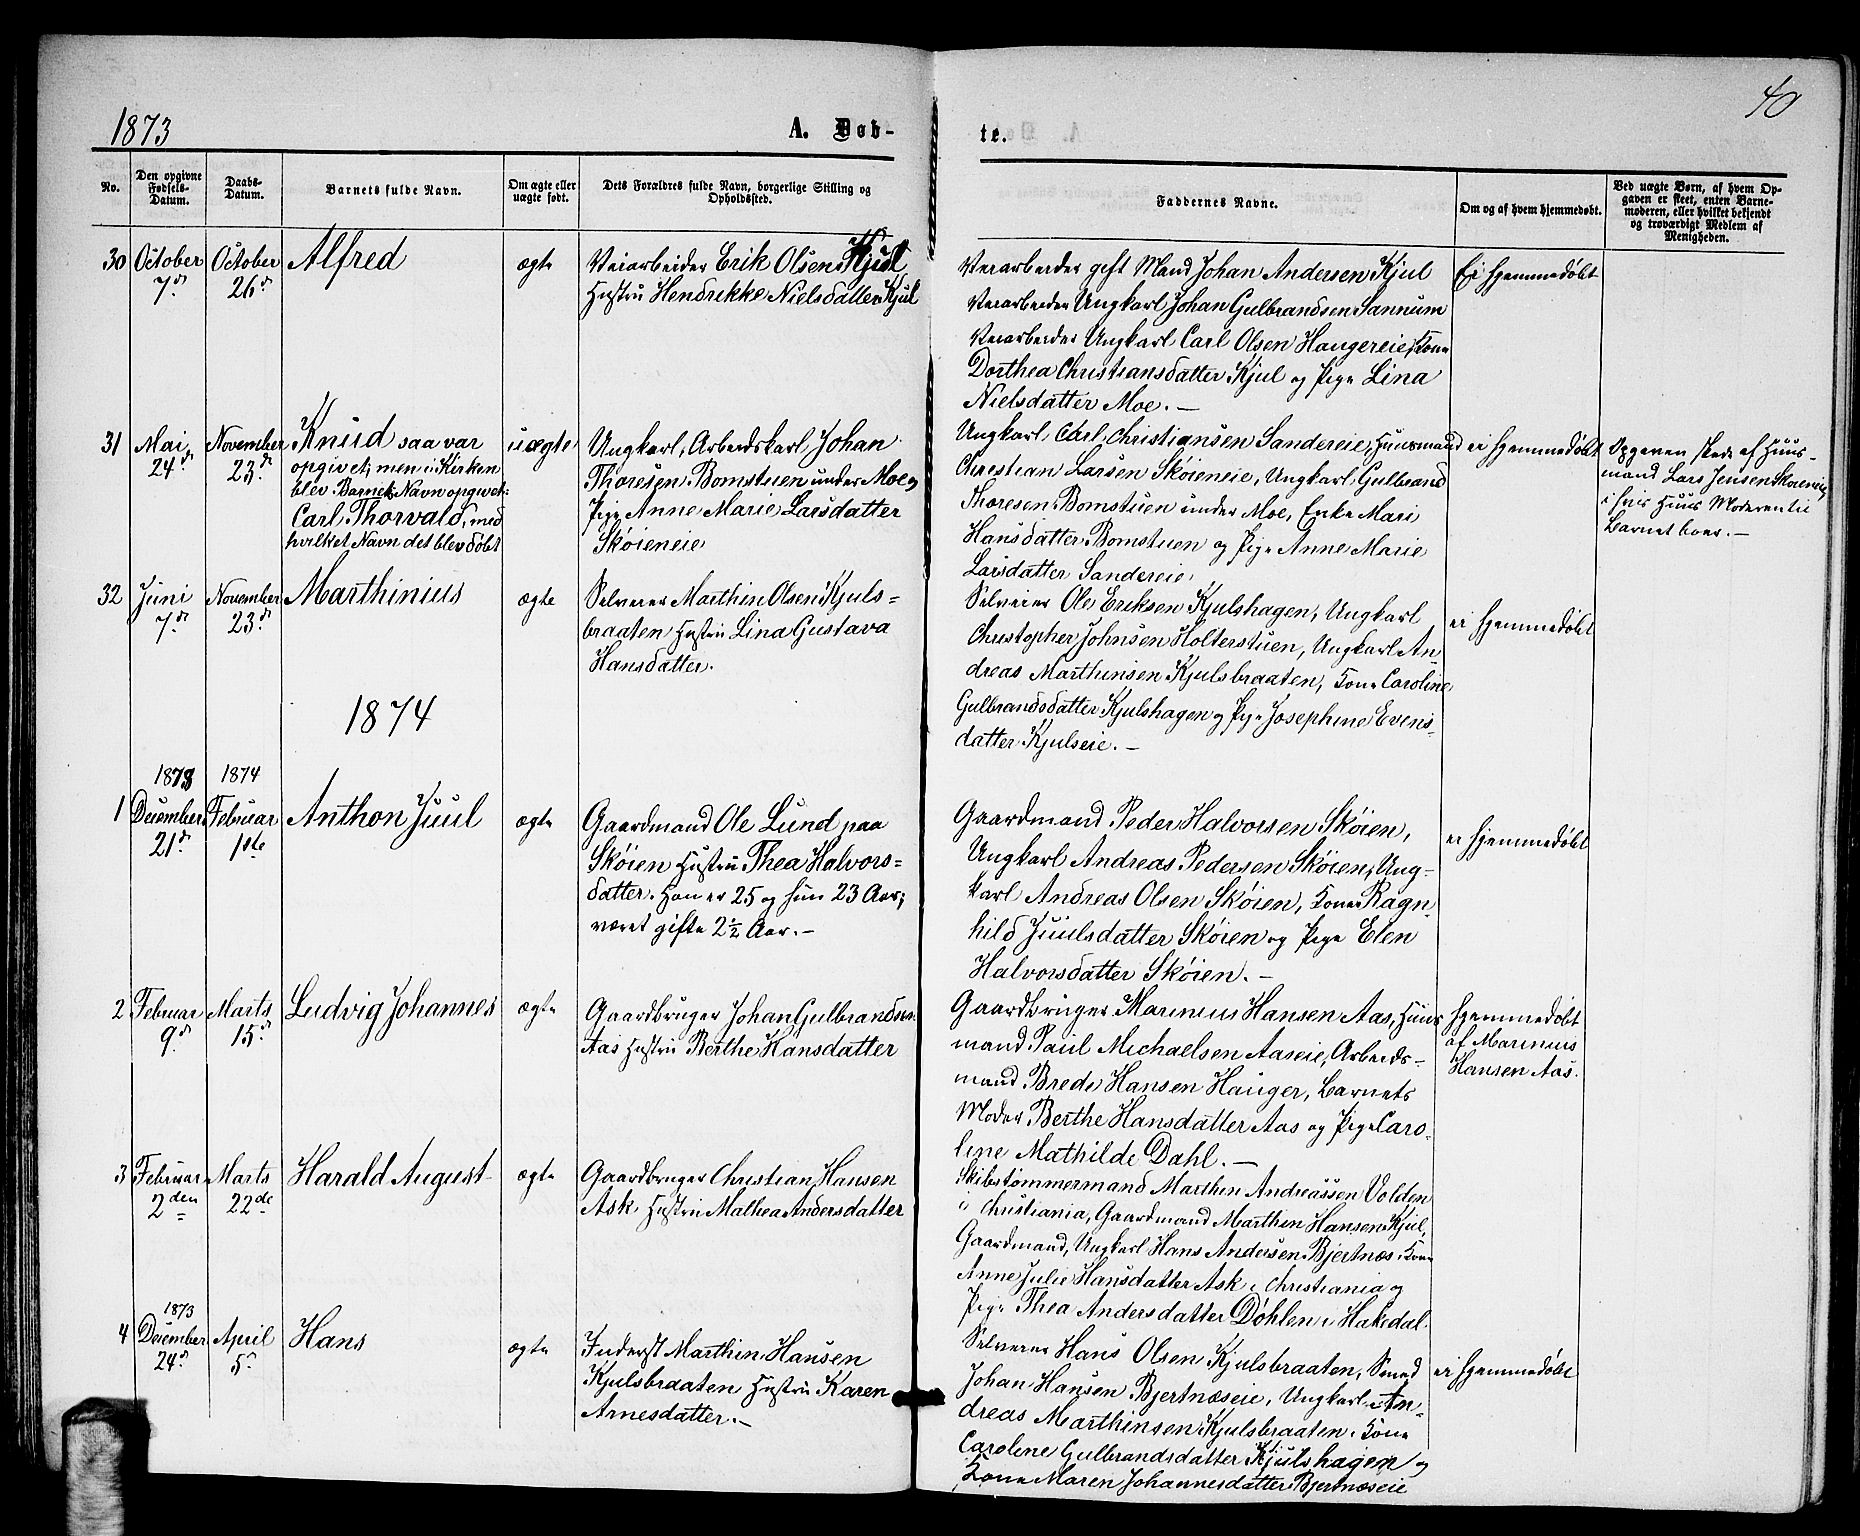 1873
A. Døb-
te.
40
No.
Den opgivne
Fødsels-
Datum.
Daabs-
Datum.
Barnets fulde Navn.
Om ægte eller
uægte født.
Dets Forældres fulde Navn, borgerlige Stilling og
Opholdssted.
Faddernes Navne.
Om og af hvem hjemmedøbt.
Ved uægte Børn, af hvem Op-
gaven er skeet, enten Barne-
moderen, eller hvilket bekjendt
og troværdigt Medlem af
Menigheden.
30 October
7d
October
26d
Alfred
ægte
Veiarbeider Erik Olsen Kjul
Hustru Hendrikke Nielsdatter Kjul
Veiarbeider gift Mand Johan Andersen Kjul
Veiarbeider Ungkarl Johan Gulbrandsen Sannum
Veiarbeider Ungkarl Carl Olsen Haugereie, Kone
Dorthea Christiansdatter Kjul og Pige Lina
Nielsdatter Moe. —
Ei hjemmedøbt
31 Mai
24d
November
23d
Knud saa var
opgivet, men i Kirken
blev Barnets Navn opgivet:
Carl Thorvald, med
hvilket Navn det blev døbt
uægte
Ungkarl, Arbeidskarl Johan
Thoresen Bomstuen under Moe og
Pige Anne Marie Larsdatter
Skøieneie
Ungkarl Carl Christiansen Sandereie, Huusmand
Christian Larsen Skøieneie, Ungkarl Gulbrand
Thoresen Bomstuen under Moe, Enke Mari
Hansdatter Bomstuen og Pige Anne Marie
Larsdatter Sandereie,
ei hjemmedøbt
Opgaven skede af Huus-
mand Lars Jensen Skøieneie
i hvis Huus Moderen til
Barnet boer. —
32 Juni
7d
November
23d
Marthinius
ægte
Selveier Marthin Olsen Kjuls-
braaten Hustru Lina Gustava
Hansdatter.
Selveier Ole Eriksen Kjulshagen, Ungkarl
Christopher Johnsen Holterstuen, Ungkarl An
dreas Marthinsen Kjulsbraaten, Kone Caroline
Gulbrandsdatter Kjulshagen og Pige Josephine Evens-
datter Kjulseie. —
ei hjemmedøbt
1874
1873
1 December
21d
1874
Februar
1ste
Anthon Juul
ægte
Gaardmand Ole Lund paa
Skøien Hustru Thea Halvors-
datter. Han er 25 og hun 23 Aar;
været gifte 2½ Aar. —
Gaardmand Peder Halvorsen Skøien,
Ungkarl Andreas Pedersen Skøien, Ung-
karl Andreas Olsen Skøien, Kone Ragn-
hild Juulsdatter Skøien og Pige Elen
Halvorsdatter Skøien. —
ei hjemmedøbt
2 Februar
9d
Marts
15d
Ludvig Johannes
ægte
Gaardbruger Johan Gulbrandsen
Aas Hustru Berthe Hansdatter
Gaardbruger Marinius Hansen Aas, Huus
mand Paul Michaelsen Aaseie, Arbeids-
mand Brede Hansen Hauger, Barnets
Moder Berthe Hansdatter Aas og Pige Caro-
line Mathilde Dahl. —
hjemmedøbt
af Marinius
Hansen Aas.
3 Februar
2den
Marts
22de
Harald August
ægte
Gaardbruger Christian Hansen
Ask Hustru Mathea Andersdatter
Skibstømmermand Marthin Andreassen Volden
i Christiania, Gaardmand Marthin Hansen Kjul,
Gaardmand, Ungkarl Hans Andersen Bjertnæs, Kone
Anne Julie Hansdatter Ask i Christiania og
Pige Thea Andersdatter Døhlen i Hakedal.
1873
4 December
24d
April
5d
Hans
ægte
Inderst Marthin Hansen
Kjulsbraaten Hustru Karen
Arnesdatter. —
Selveier Hans Olsen Kjulsbraaten, Smed
Johan Hansen Bjertnæseie, Ungkarl An-
dreas Marthinsen Kjulsbraaten, Kone
Caroline Gulbrandsdatter Kjulshagen og
Kone Maren Johannesdatter Bjertnæseie
ei hjemmedøbt